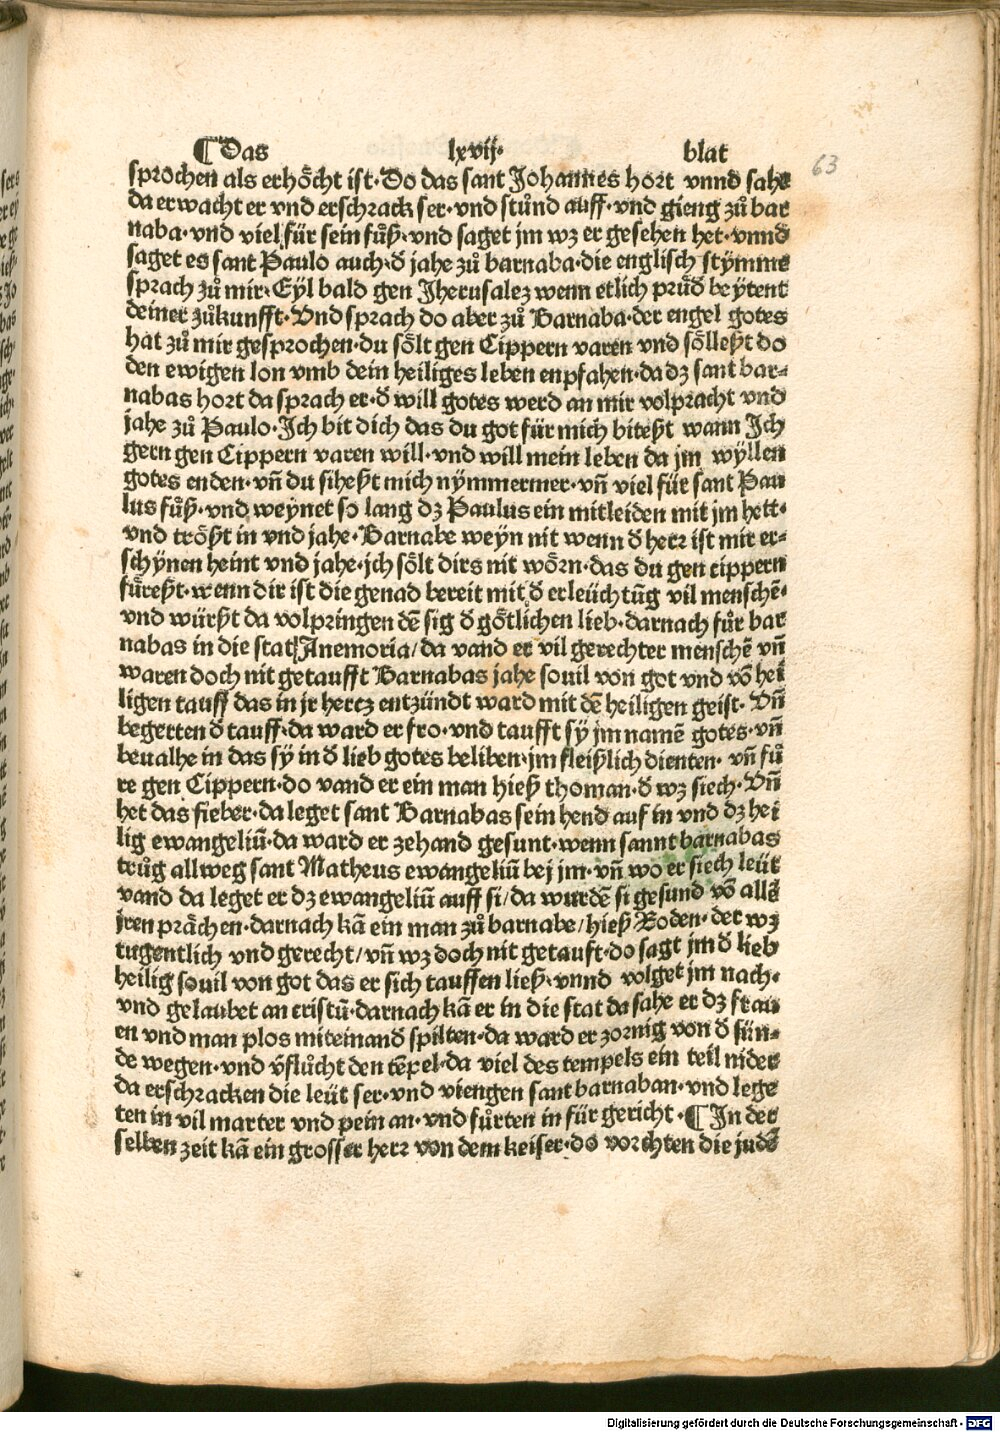 ¶ Das lxvij· blat
63
sprochen als erhoͤcht ist· Do das sant Johannes hort vnnd sahe
da erwacht er vnd erschrack ser· vnd stuͦnd auff· vnd gieng zuͦ bar
naba· vnd viel für sein fuͤß· vnd saget jm wz er gesehen het· vnnd
saget es sant Paulo auch· d̕ jahe zuͦ barnaba· die englisch stymme
sprach zuͦ mir· Eyl bald gen Jherusalez wenn etlich pruͤd̕ beÿtent
deiner zuͦkunfft· Vnd sprach do aber zuͦ Barnaba· der engel gotes
hat zuͦ mir gesprochen· du soͤlt gen Cippern varen vnd soͤlleßt do
den ewigen lon vmb dein heiliges leben enpfahen· da dz sant bar⸗
nabas hort da sprach er· d̕ will gotes werd an mir volpracht vnd
jahe zuͦ Paulo· Ich bit dich das du got für mich biteßt wann Ich
gern gen Cippern varen will· vnd will mein leben da jm wyllen
gotes enden· vñ du siheßt mich nÿmmermer· vñ viel für sant Pau
lus fuͤß· vnd weynet so lang dz Paulus ein mitleiden mit jm hett·
vnd troͤßt in vnd jahe· Barnabe weyn nit wenn d̕ herr ist mir er⸗
schÿnen heint vnd jahe· jch soͤlt dirs nit woͤrn· das du gen cippern
fuͤreßt· wenn dir ist die genad bereit mit d̕ erleüchtũg vil menschẽ·
vnd würßt da volpringen dẽ sig d̕ goͤtlichen lieb· darnach fuͦr bar
nabas in die stat Anemoria/ da vand er vil gerechter menschẽ vñ
waren doch nit getaufft Barnabas jahe souil von got vnd võ hei
ligen tauff das in jr hertz entzündt ward mit dẽ heiligen geist· Vñ
begerten d̕ tauff· da ward er fro· vnd taufft sÿ jm namẽ gotes· vñ
beualhe in das sÿ in d̕ lieb gotes beliben· jm fleißlich dienten· vñ fuͦ
re gen Cippern· do vand er ein man hieß thoman· d̕ wz siech· Vñ
het das fieber· da leget sant Barnabas sein hend auf in vnd dz hei
lig ewangeliũ· da ward er zehand gesunt· wenn sannt barnabas
truͦg allweg sant Matheus ewangeliũ bej jm· vñ wo er siech leüt
vand da leget er dz ewangeliũ auff si/ da wurdẽ si gesund võ allẽ
jren praͤchen· darnach kã ein man zuͦ barnabe/ hieß Boden· der wz
tugentlich vnd gerecht/ vñ wz doch nit getauft· do sagt jm d̕ lieb
heilig souil von got das er sich tauffen ließ· vnnd volget jm nach·
vnd gelaubet an cristũ· darnach kã er in die stat da sahe er dz frau
en vnd man plos miteinand̕ spilten· da ward er zornig von d̕ sün⸗
de wegen· vnd v̕fluͦcht den tẽpel· da viel des tempels ein teil nider
da erschracken die leüt ser· vnd viengen sant barnaban· vnd lege
ten in vil marter vnd pein an· vnd fuͦrten in für gericht· ¶ In der
selben zeit kã ein grosser herr von dem keiser· do vorchten die judẽ
Digitalisierung gefördert durch die Deutsche Forschungsgemeinschaft - DFG